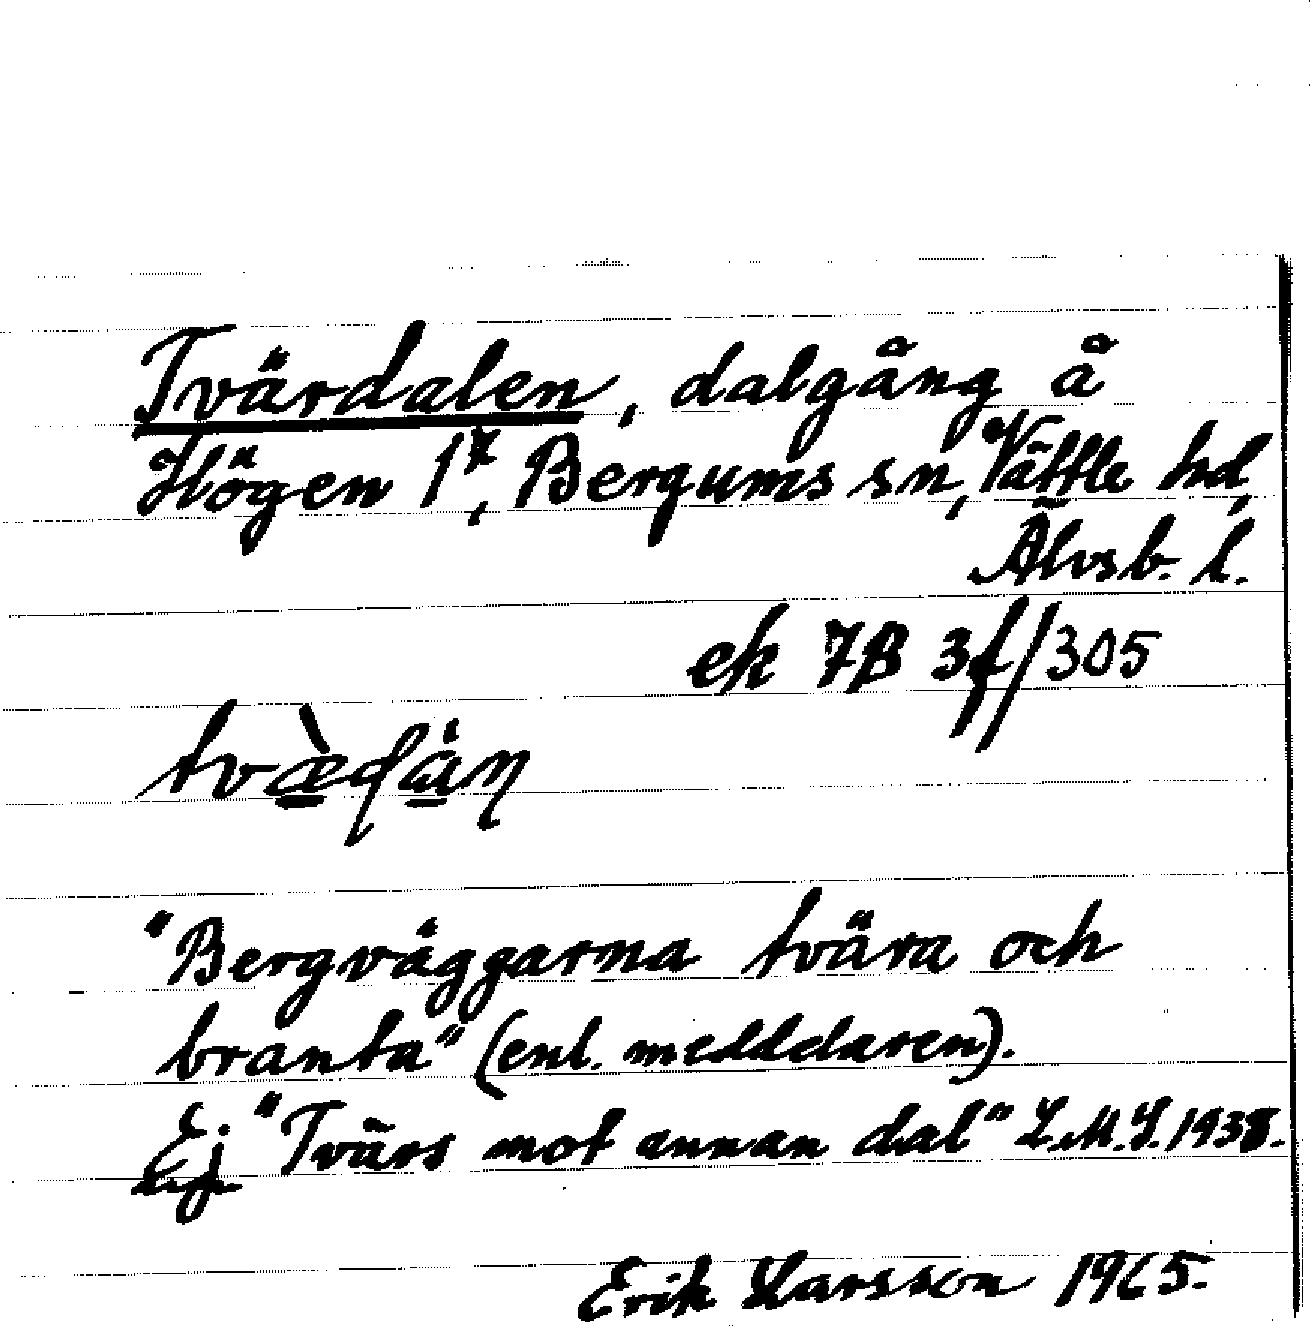 Tvärdalen, dalgång å
Högen 1⁷, Bergums sn, Vättle hd,
Älvsb. l.
ek 7B 3f/305
"Bergväggarna tvära och
branta" (enl. meddelaren).
Ej "Tvärs mot annan dal" 1938.
Erik Larsson 1965.